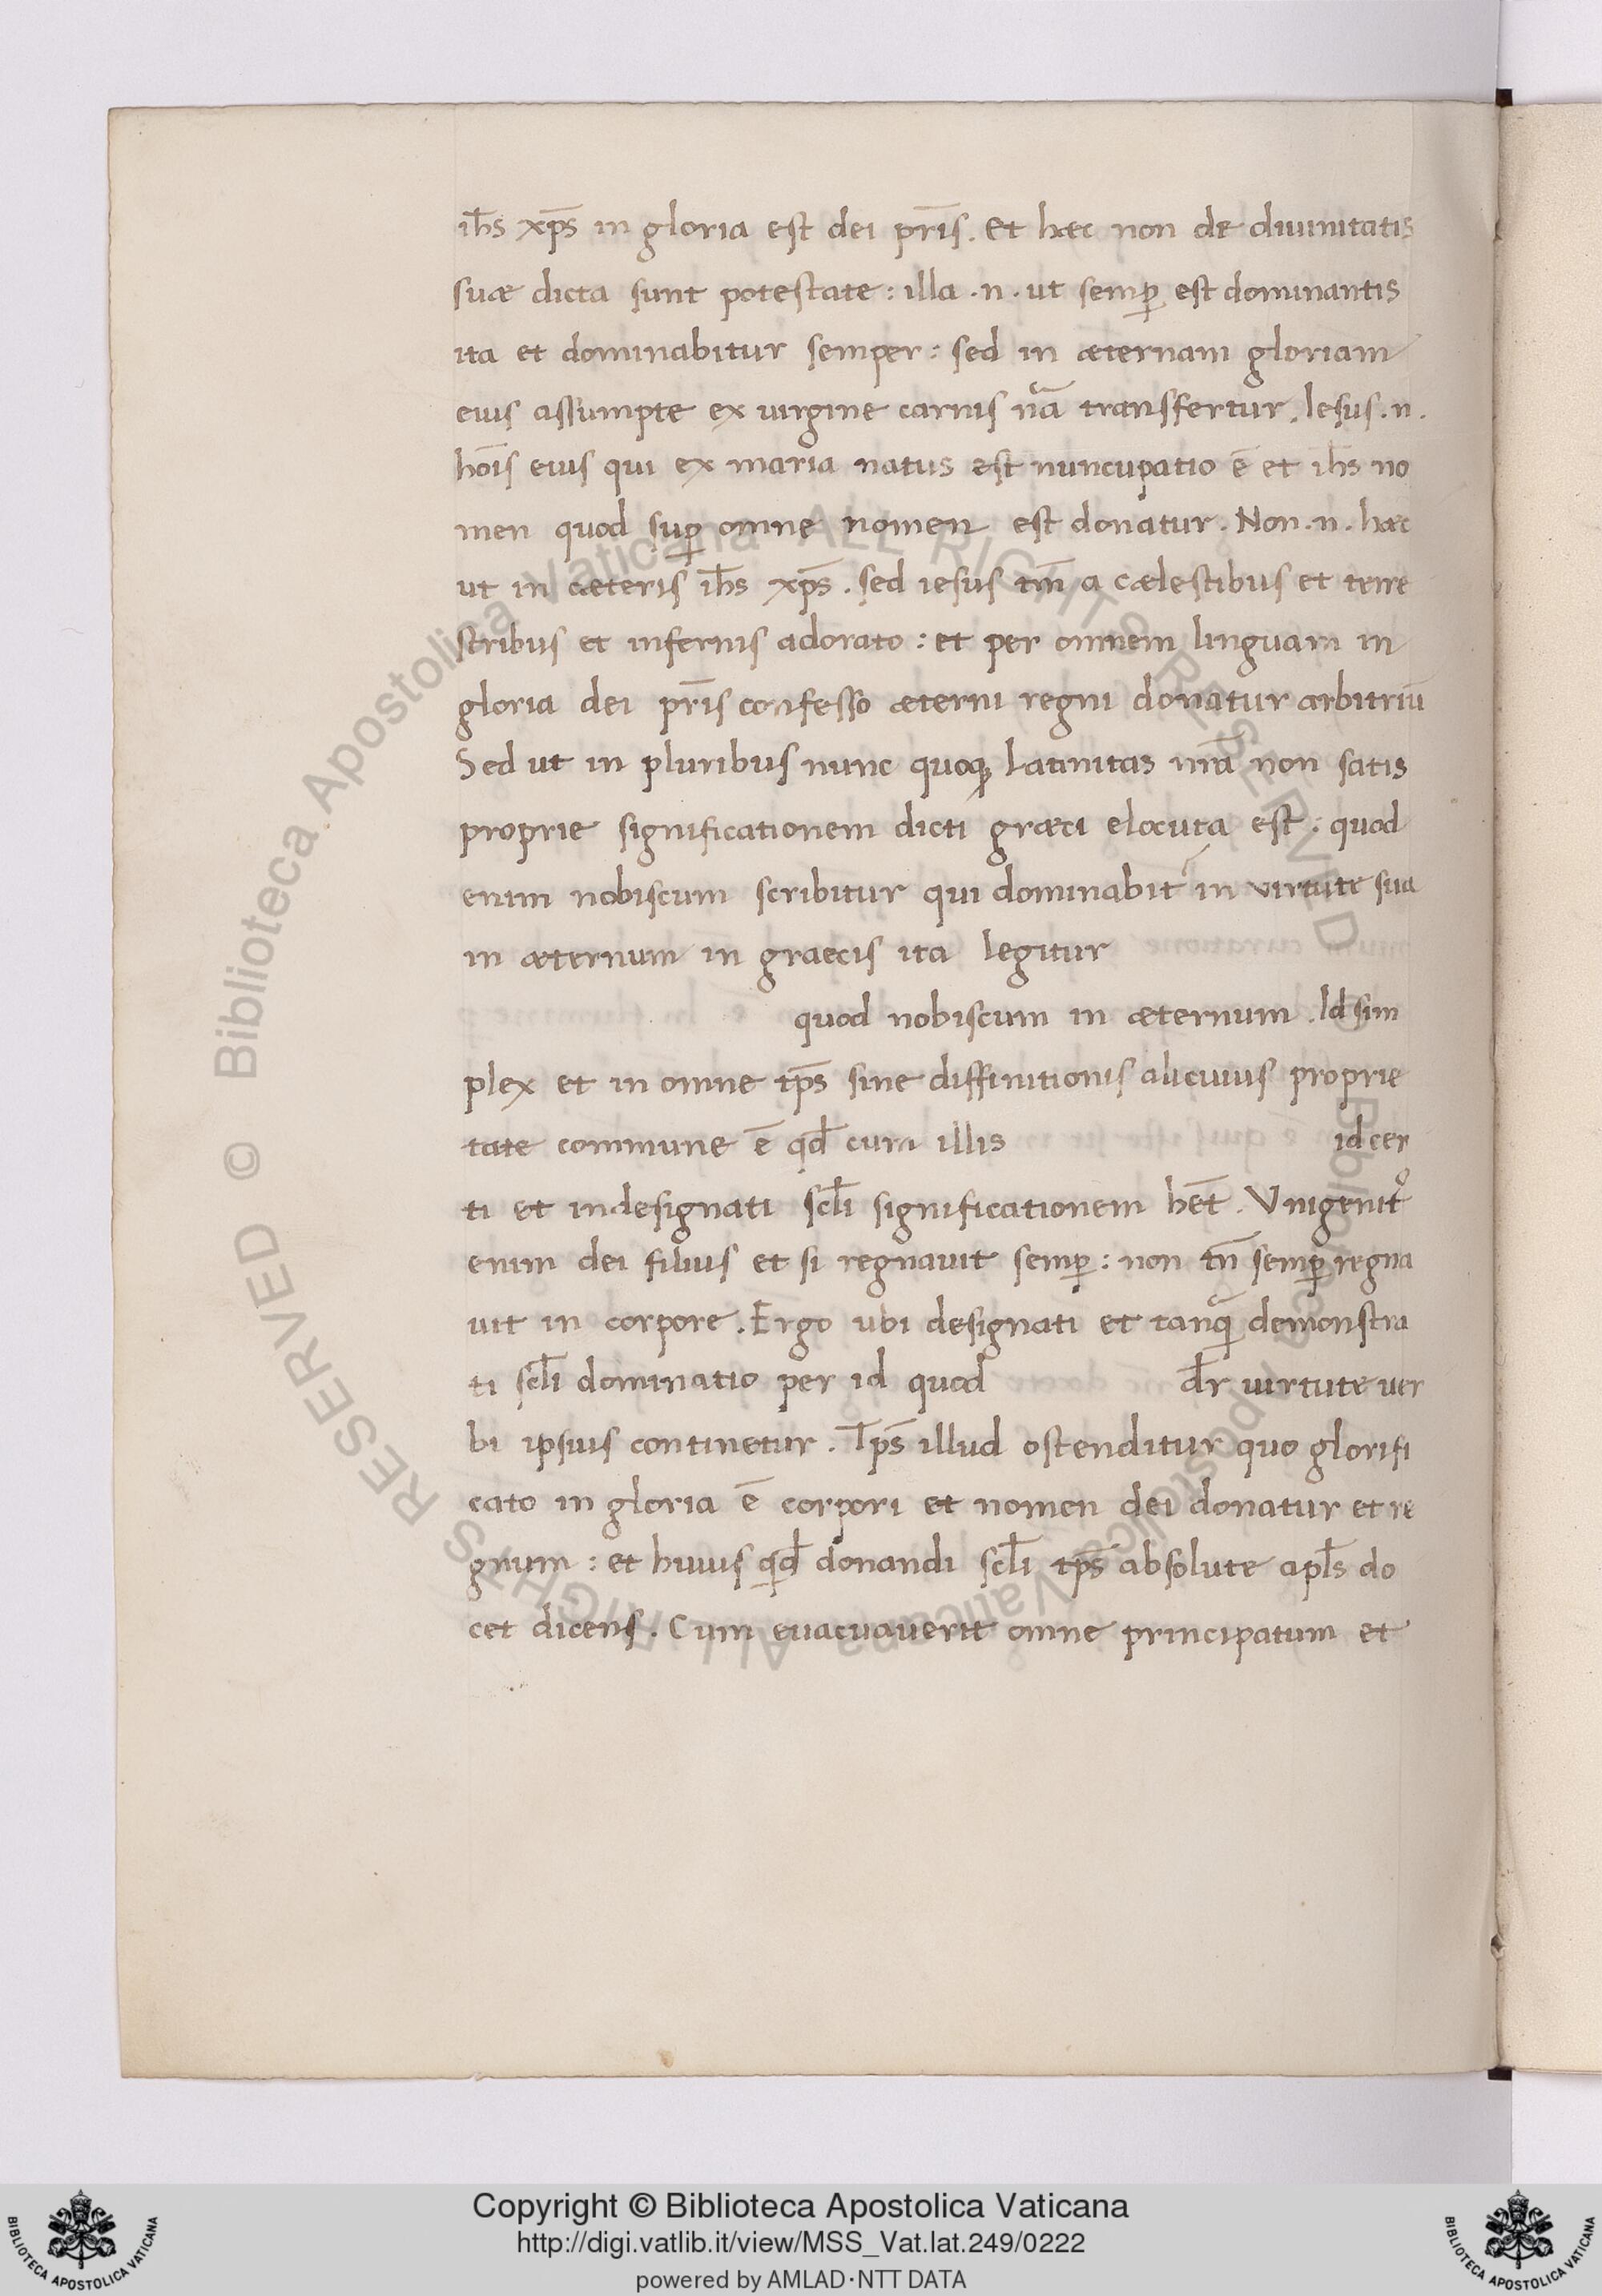 ih̅s xp̅s in gloria est dei pr̅is. et hæc non de diuinitatis
suæ dicta sunt potestate : illa .n. ut semꝑ est dominantis
ita et dominabitur semper : sed in æternam gloriam
eius assumpte ex uirgine carnis nãa transfertur. Iesus .n.
ho̅is eius qui ex maria natus est nuncupatio e̅ et ih̅s no
men quod suꝑ omne nomen est donatur. Non .n. hæc
ut in cæteris ih̅s xp̅s. sed iesus tm̅ a cælestibus et terre
stribus et infernis adorato : et per omnem linguam in
gloria dei pr̅is confesso æterni regni donatur arbitriu̅
Sed ut in pluribus nunc quoqꝫ latinitas nr̅a non satis
proprie significationem dicti græci elocuta est : quod
enim nobiscum scribitur qui dominabit᷑ in virtute sua
in æternum in graecis ita legitur
quod nobiscum in æternum. Id sim
plex et in omne tp̅s sine diffinitionis alicuius proprie
tate commune e̅ qd̅ cum illis id cer
ti et indesignati sc̅li significationem he̅t. Vnigenitꝰ
enim dei filius et si regnauit semꝑ : non tn̅ semꝑ regna
uit in corpore. Ergo ubi designati et tanqᷓ demonstra
ti sc̅li dominatio per id quod dr̅ uirtute uer
bi ipsius continetur. Tp̅s illud ostenditur quo glorifi
cato in gloria e̅ corpori et nomen dei donatur et re
gnum : et huius qd̅ donandi sc̅li tp̅s absolute apl̅s do
cet dicens. Cum euacuauerit omne principatum et
© Biblioteca Apostolica Vaticana ALL RIGHTS RESERVED
© Biblioteca Apostolica Vaticana ALL RIGHTS RESERVED
Copyright © Biblioteca Apostolica Vaticana
http://digi.vatlib.it/view/MSS_Vat.lat.249/0222
powered by AMLAD·NTT DATA
BIBLIOTECA APOSTOLICA VATICANA
BIBLIOTECA APOSTOLICA VATICANA